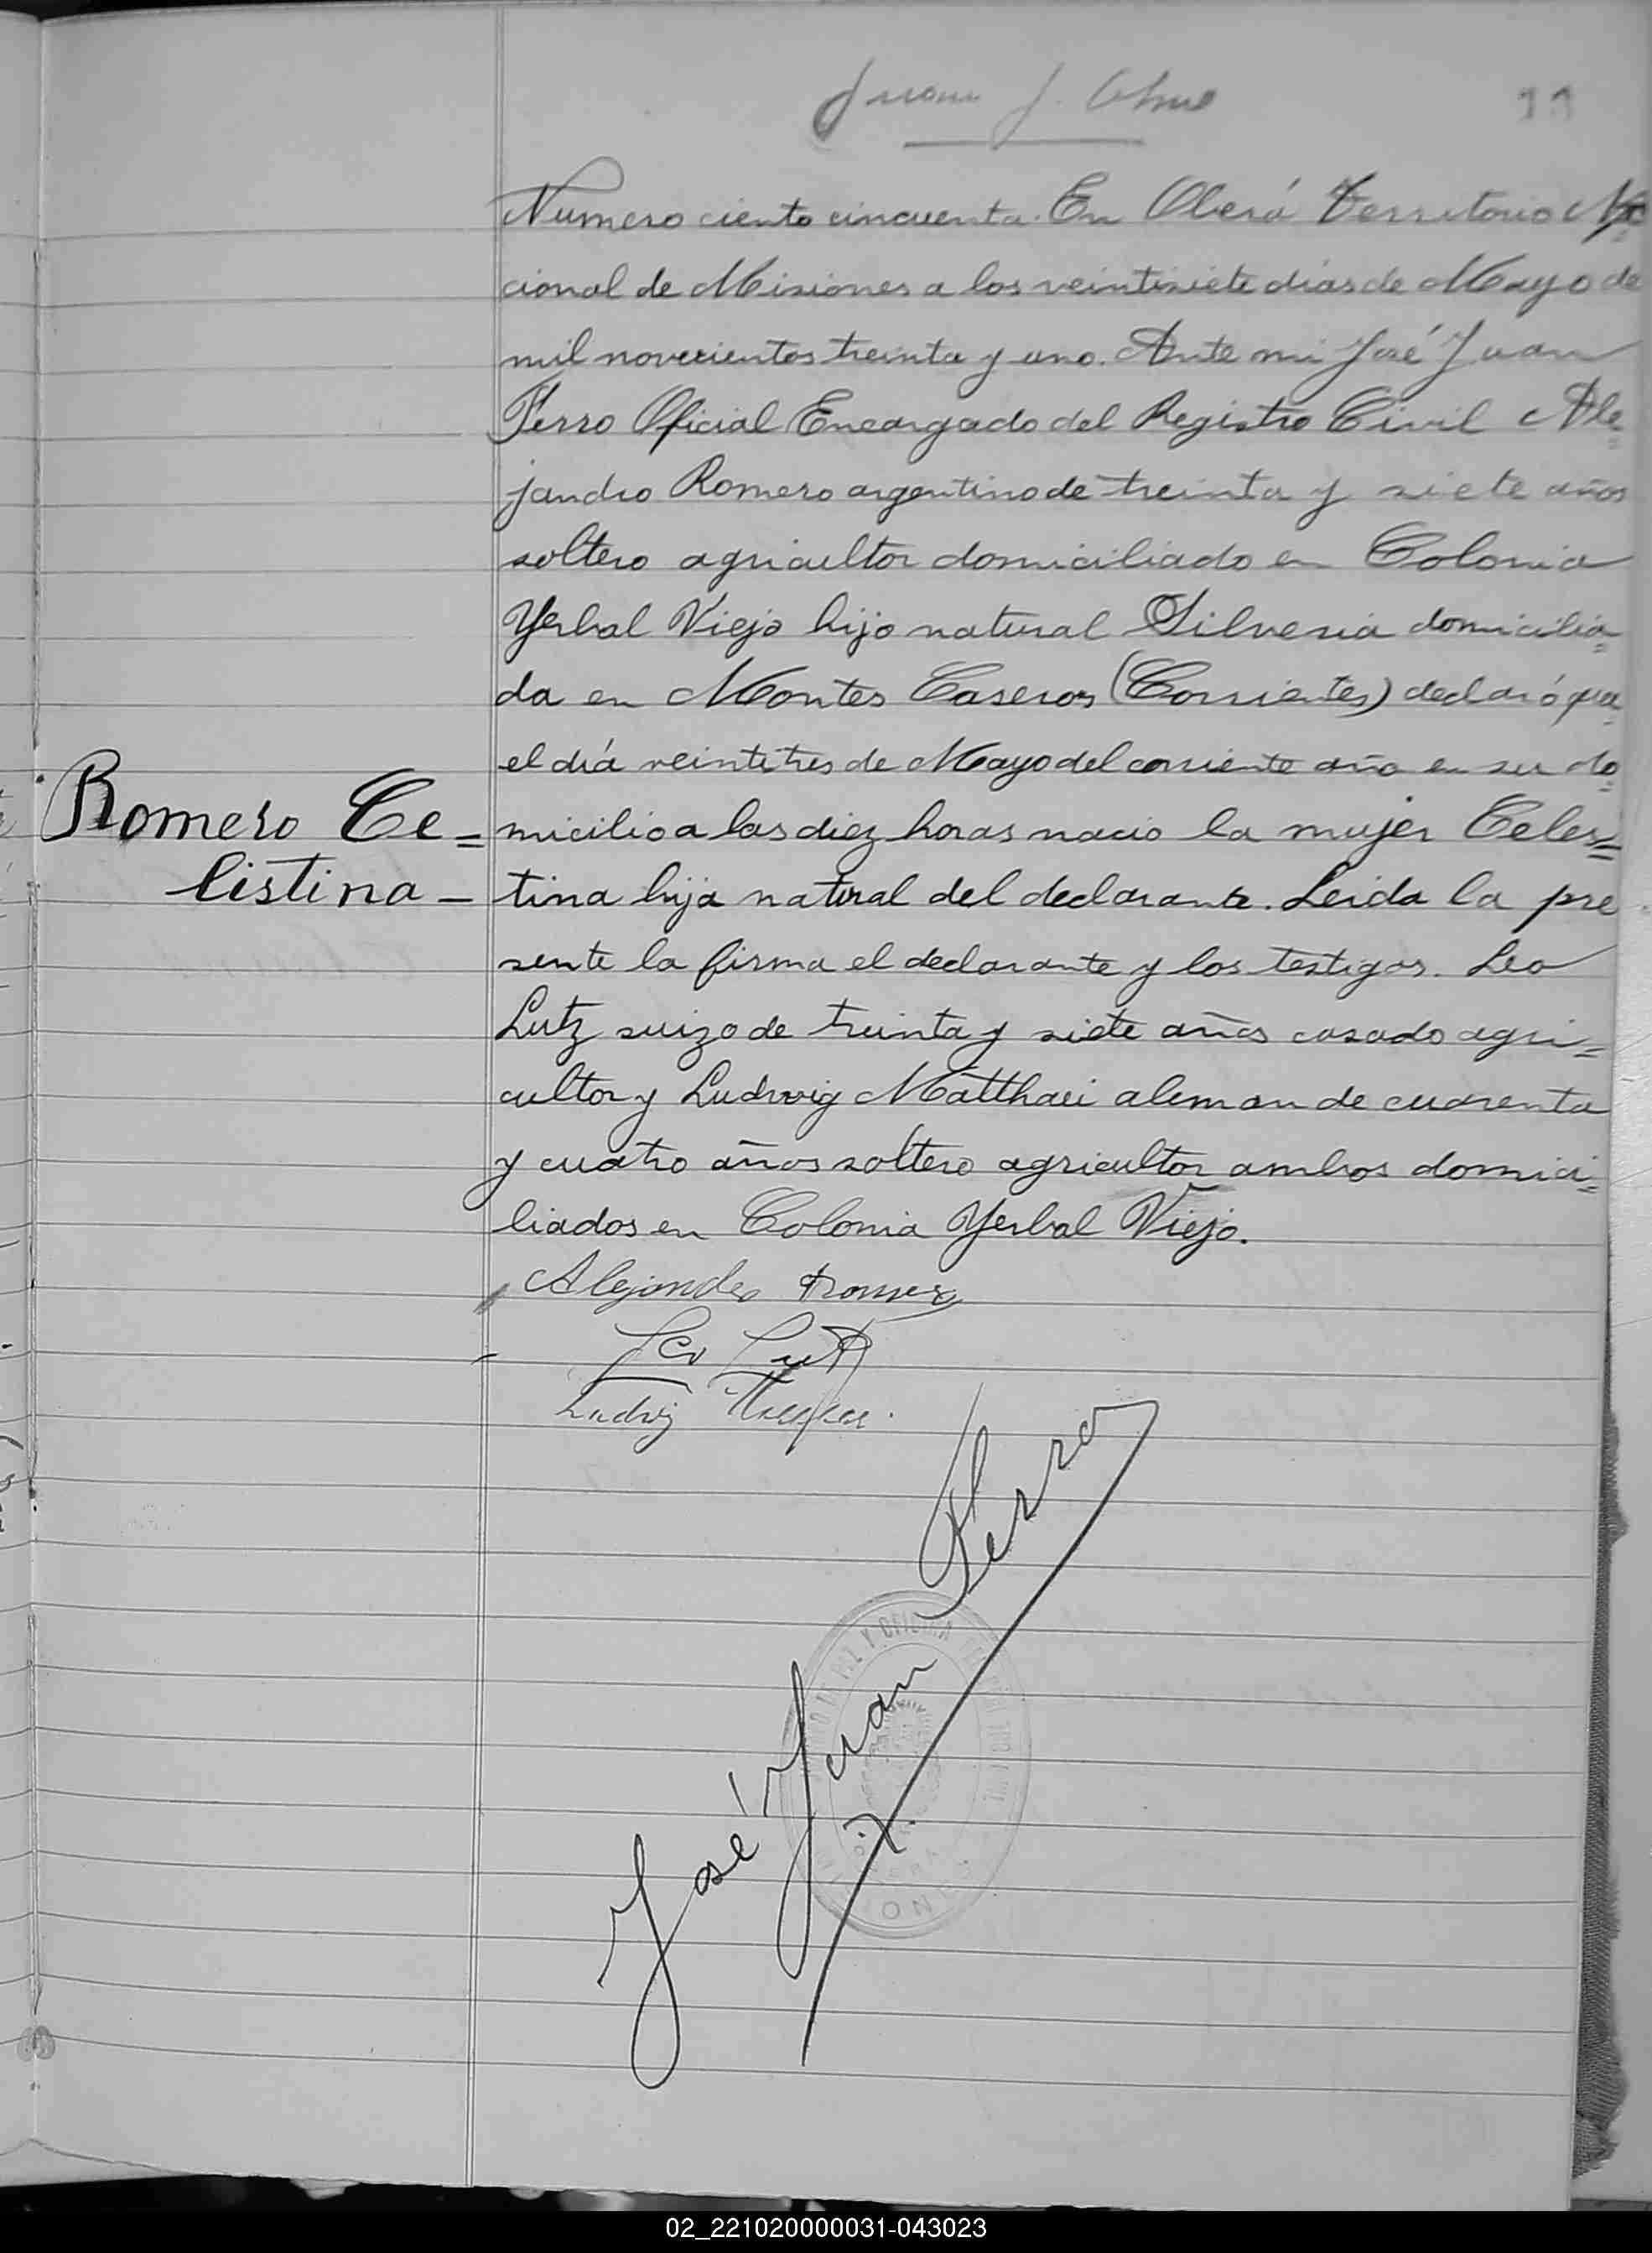 Juan J.
11
Numero ciento cincuenta. En Oberá Territorio Na=
cional de Misiones a los veintisiete días de Mayo de
mil novecientos treinta y uno. Ante mi José Juan
Ferro Oficial Encargado del Registro Civil Ale=
jandro Romero argentino de treinta y siete años
soltero agricultor domiciliado en Colonia
Yerbal Viejo hijo natural Silveria domicilia=
da en Montes Caseros (Corrientes) declaró que
el día veintitres de Mayo del corriente año en su do=
Romero Ce= micilio a las diez horas nacio la mujer Celes=
listina - tina hija natural del declarante. Leida la pre
sente la firma el declarante y los testigos. Leo
Lutz suizo de treinta y siete años casado agri=
cultor y Ludwig Matthaei aleman de cuarenta
y cuatro años soltero agricultor ambos domici=
liados en Colonia Yerbal Viejo.
Alejandro Romero
Leo Lutz
Ludwig
José Juan Ferro
DE PAZ Y OFICINA
OBERA
MISIONES
02_221020000031-043023